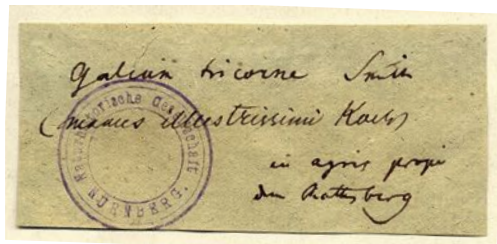 Galium tricorne Smith
(manus illustrissimi Koch)
in agris prope
den Rathsberg
Naturhistorische Gesellschaft
NÜRNBERG.